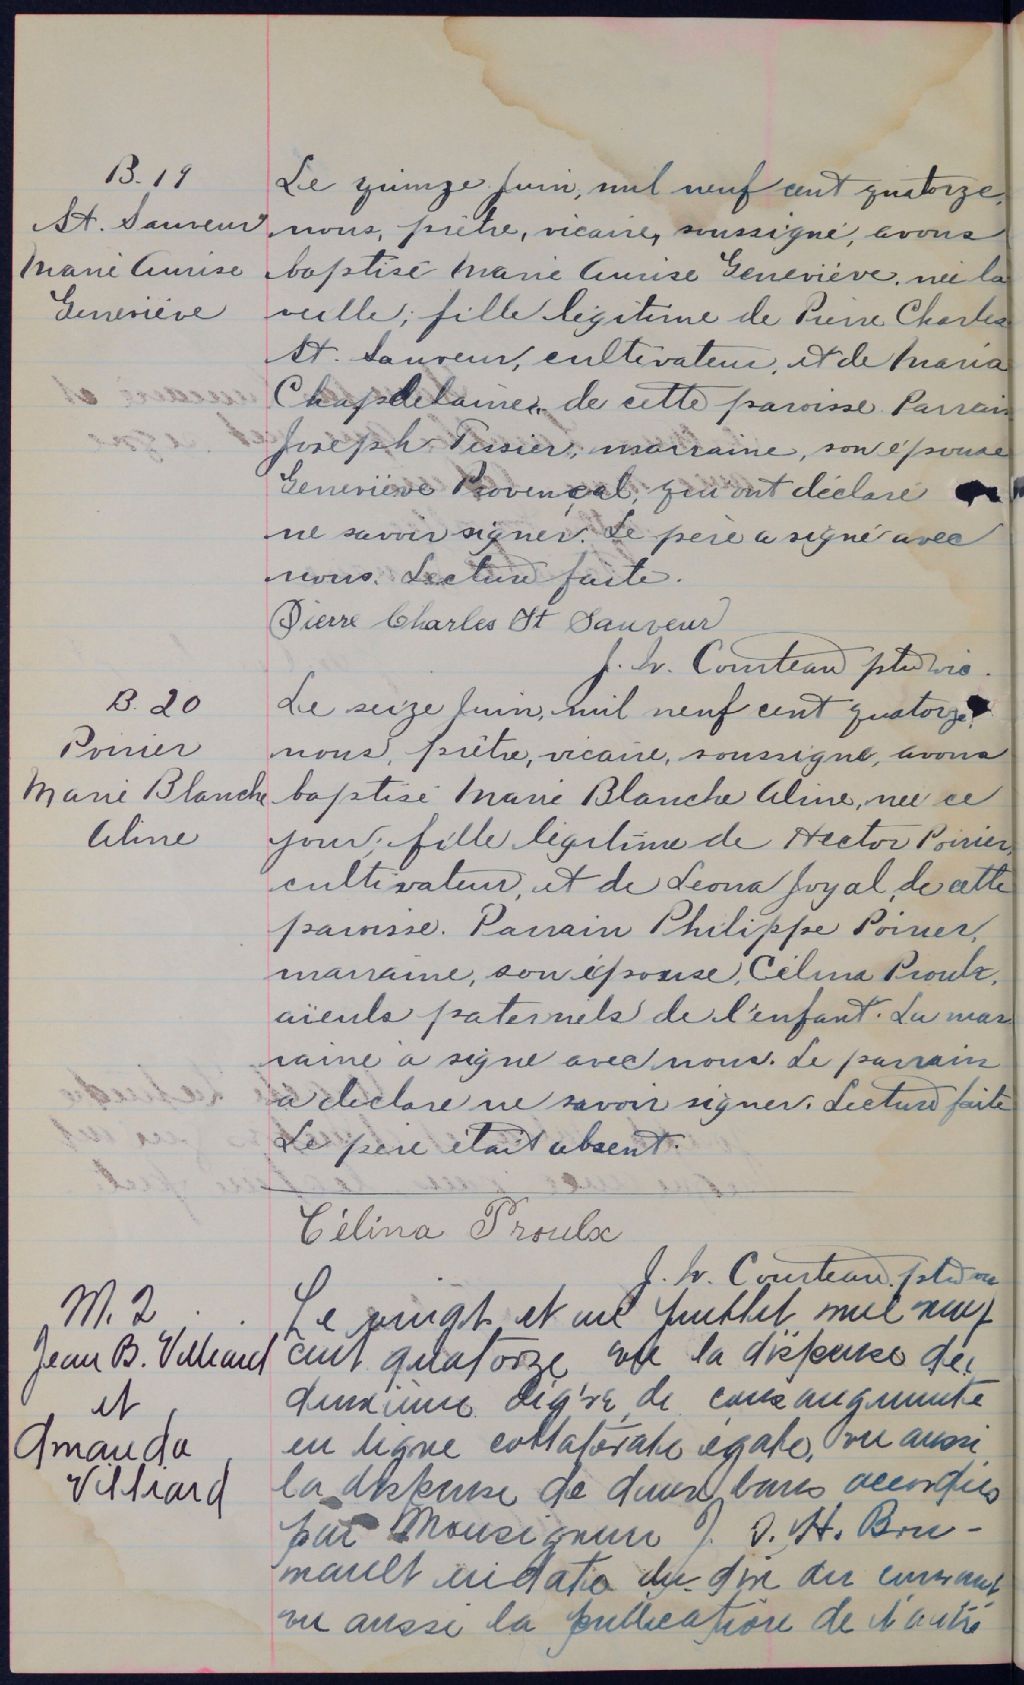 B. 19
St. Sauveur
Marie Aurise
Geneviève
Le quinze Juin, mil neuf cent quatorze,
nous, prêtre, vicaire, soussigné, avons
baptisé Marie Aurise Geneviève, née la
veille; fille légitime de Pierre Charles
St. Sauveur, cultivateur, et de Maria
Chapdelaine, de cette paroisse. Parrain
Joseph Tessier; marraine, son épouse
Geneviève Provençal, qui ont déclaré
ne savoir signer. Le père a signé avec
nous. Lecture faite.
Pierre Charles St Sauveur
J. h. Courteau ptre vic.
B. 20
Poirier
Marie Blanche
Aline
Le seize Juin, mil neuf cent quatorze,
nous, prêtre, vicaire, soussigné, avons
baptisé Marie Blanche Aline, née ce
jour; fille légitime de Hector Poirier,
cultivateur, et de Leona Joyal, de cette
paroisse. Parrain Philippe Poirier,
marraine, son épouse, Célina Proulx,
aïeuls paternels de l'enfant. La mar
raine a signé avec nous. Le parrain
a déclaré ne savoir signer. Lecture faite
Le père était absent.
Célina Proulx
J. h. Courteau ptre vic
M. 2
Jean B. Villiard
et
Amanda
Villiard
Le vingt et un Juillet mil neuf
cent quatorze vu la dispense de
deuxième degré de consanguinité
en ligne collatérale égale, vu aussi
la dispense de deux bans accordées
par Monseigneur J. S. H. Bru-
nault en date du dix du courant
vu aussi la publication de l'autre